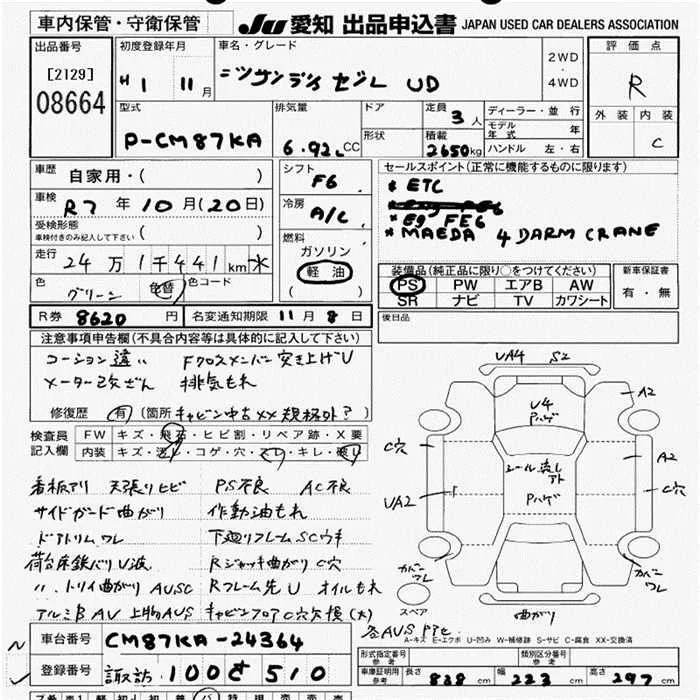 車内保管・守衛保管 JU 愛知 出品申込書 JAPAN USED CAR DEALERS ASSOCIATION
出品番号 [2129] 08664
初度登録年月 H1 11月
車名・グレード ニッサンディーゼル UD
2WD・4WD
評価点 R
外装 内装 C
型式 P-CM87KA
排気量 6.92L CC
ドア 形状
定員 3人
積載 2650kg
ディーラー・並行
モデル年式 年
ハンドル 左・右
車歴 自家用・( )
車検 R7年10月(20日)
受検形態 車検付きのみ記入して下さい ( )
走行 24万1千441km
色 グリーン 色替 色コード
シフト F6
冷房 A/C
燃料 ガソリン 軽油 ( )
セールスポイント(正常に機能するものに限ります)
* ETC
* Eg FE6
* MAEDA 4 DARM CRANE
装備品(純正品に限り○をつけてください)
PS PW エアB AW
SR ナビ TV カワシート
新車保証書 有・無
R券 8620円 名変通知期限 11月8日
後日品
注意事項申告欄(不具合内容等は具体的に記入して下さい)
コーション違い Fクロスメンバー突き上げU
メーター改ざん 排気もれ
修復歴 有 (箇所 キャビン中古XX 規格外?)
検査員記入欄 FW キズ・飛石・ヒビ割・リペア跡・X要
内装 キズ・汚レ・コゲ・穴・スレ・キレ・破レ
看板アリ 天張りヒビ PS不良 AC不良
サイドガード曲がり 作動油もれ
ドアトリムワレ 下廻りフレームSCウキ
荷台床鉄バリU波 Rジャッキ曲がりC穴
〃 トリイ曲がり AUSC Rフレーム先U オイルもれ
アルミB AV 上物AUS キャビンフロアC穴欠損(大)
各AUS Pアセ
UA4 S2
A2
U4 Pハゲ
C穴
A2
シール流しアト Pハゲ
C穴
UA2
カバーワレ
カバーワレ
スペア
曲がり
A-キズ E-エクボ U-凹み W-補修跡 S-サビ C-腐食 XX-交換済
車台番号 CM87KA-24364
登録番号 諏訪 100 さ 510
形式指定番号 参考 類別区分番号 参考
車庫証明用 参考 長さ 828cm 幅 223cm 高さ 297cm